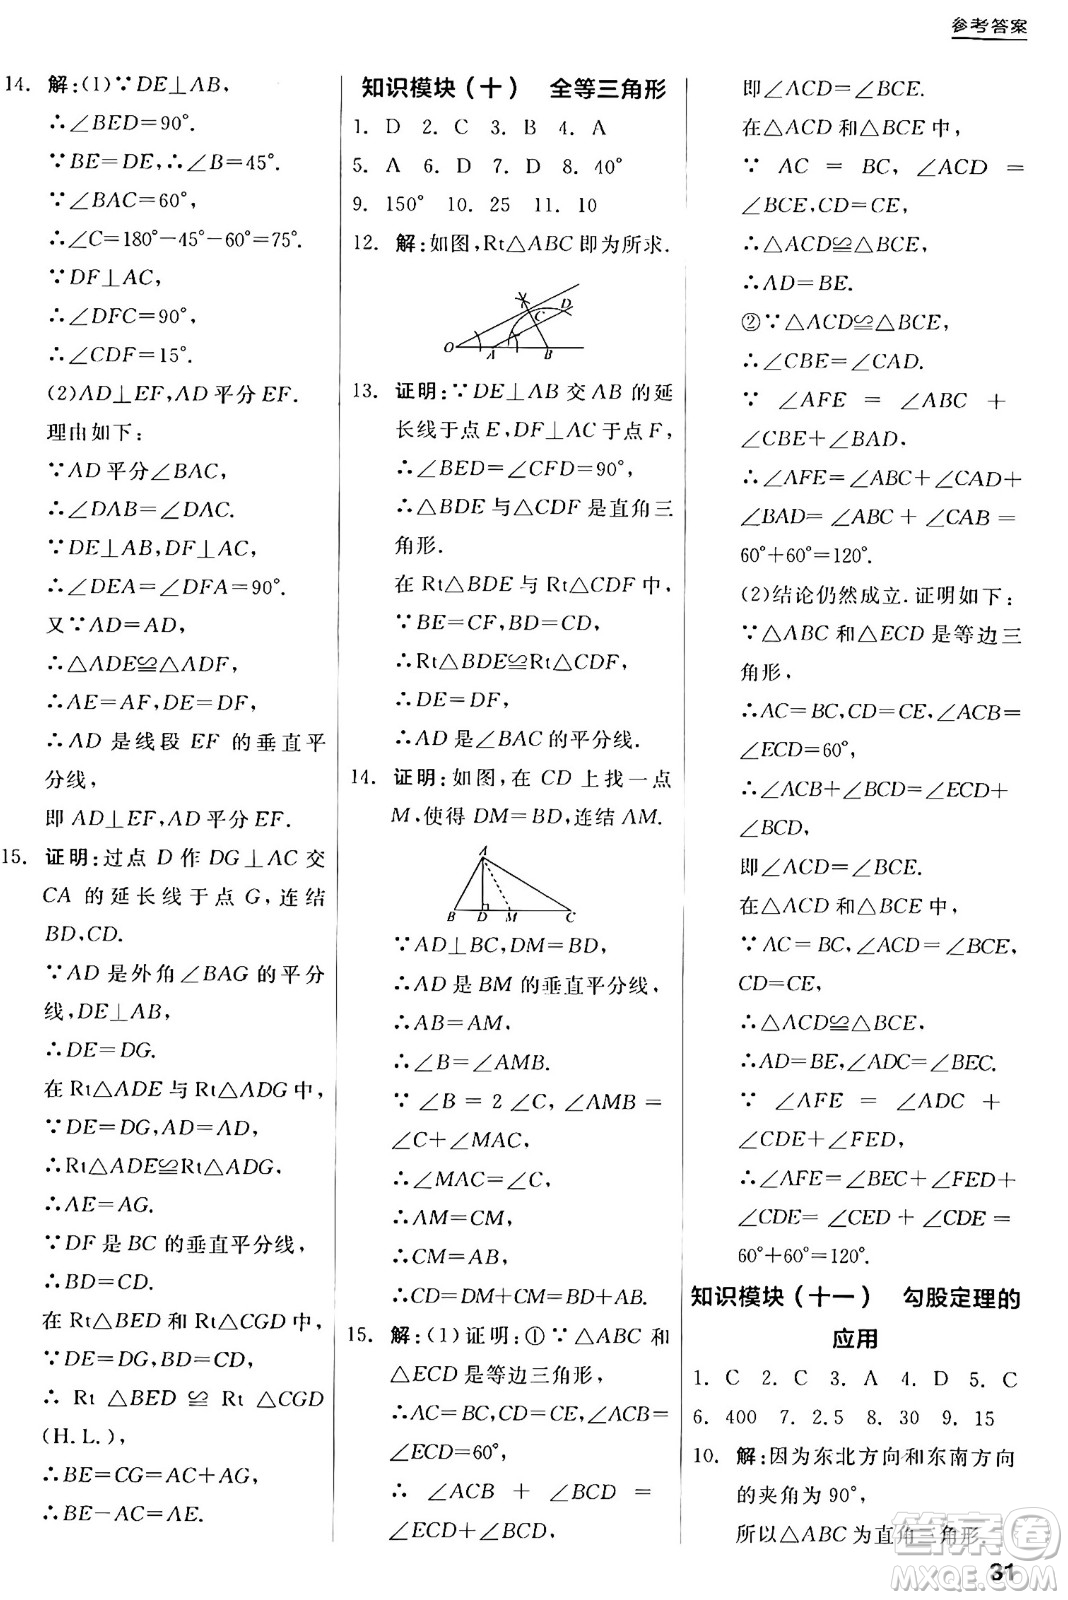 参考答案
14. 解:(1)∵DE⊥AB,
∴∠BED=90°.
∵BE=DE,∴∠B=45°.
∵∠BAC=60°,
∴∠C=180°-45°-60°=75°.
∵DF⊥AC,
∴∠DFC=90°.
∴∠CDF=15°.
(2)AD⊥EF,AD平分EF.
理由如下:
∵AD平分∠BAC,
∴∠DAB=∠DAC.
∵DE⊥AB,DF⊥AC,
∴∠DEA=∠DFA=90°.
又∵AD=AD,
∴△ADE≌△ADF,
∴AE=AF,DE=DF,
∴AD 是线段 EF 的垂直平
分线,
即 AD⊥EF,AD平分EF.
15. 证明:过点 D 作 DG⊥AC 交
CA 的延长线于点 G,连结
BD,CD.
∵AD 是外角∠BAG 的平分
线,DE⊥AB,
∴DE=DG.
在 Rt△ADE 与 Rt△ADG 中,
∵DE=DG,AD=AD,
∴Rt△ADE≌Rt△ADG.
∴AE=AG.
∵DF 是 BC 的垂直平分线,
∴BD=CD.
在 Rt△BED 和 Rt△CGD 中,
∵DE=DG,BD=CD,
∴ Rt △BED ≌ Rt △CGD
(H.L.),
∴BE=CG=AC+AG.
∴BE-AC=AE.
知识模块(十) 全等三角形
1. D 2. C 3. B 4. A
5. A 6. D 7. D 8. 40°
9. 150° 10. 25 11. 10
12. 解:如图,Rt△ABC 即为所求.
C D
O A B
13. 证明:∵DE⊥AB 交 AB 的延
长线于点 E,DF⊥AC 于点 F,
∴∠BED=∠CFD=90°,
∴△BDE 与△CDF 是直角三
角形.
在 Rt△BDE 与 Rt△CDF 中,
∵BE=CF,BD=CD,
∴Rt△BDE≌Rt△CDF,
∴DE=DF,
∴AD 是∠BAC 的平分线.
14. 证明:如图,在 CD 上找一点
M,使得 DM=BD,连结 AM.
A
B D M C
∵AD⊥BC,DM=BD,
∴AD 是 BM 的垂直平分线,
∴AB=AM.
∴∠B=∠AMB.
∵ ∠B = 2 ∠C, ∠AMB =
∠C+∠MAC,
∴∠MAC=∠C,
∴AM=CM,
∴CM=AB,
∴CD=DM+CM=BD+AB.
15. 解:(1)证明:①∵△ABC 和
△ECD 是等边三角形,
∴AC=BC,CD=CE,∠ACB=
∠ECD=60°,
∴ ∠ACB + ∠BCD =
∠ECD+∠BCD,
即∠ACD=∠BCE.
在△ACD 和△BCE 中,
∵ AC = BC, ∠ACD =
∠BCE,CD=CE,
∴△ACD≌△BCE,
∴AD=BE.
②∵△ACD≌△BCE,
∴∠CBE=∠CAD.
∵ ∠AFE = ∠ABC +
∠CBE+∠BAD,
∴∠AFE=∠ABC+∠CAD+
∠BAD=∠ABC + ∠CAB =
60°+60°=120°.
(2)结论仍然成立.证明如下:
∵△ABC 和△ECD 是等边三
角形,
∴AC=BC,CD=CE,∠ACB=
∠ECD=60°,
∴∠ACB+∠BCD=∠ECD+
∠BCD,
即∠ACD=∠BCE.
在△ACD 和△BCE 中,
∵AC=BC,∠ACD=∠BCE,
CD=CE,
∴△ACD≌△BCE.
∴AD=BE,∠ADC=∠BEC.
∵ ∠AFE = ∠ADC +
∠CDE+∠FED,
∴∠AFE=∠BEC+∠FED+
∠CDE= ∠CED + ∠CDE =
60°+60°=120°.
知识模块(十一) 勾股定理的
应用
1. C 2. C 3. A 4. D 5. C
6. 400 7. 2.5 8. 30 9. 15
10. 解:因为东北方向和东南方向
的夹角为 90°,
所以△ABC 为直角三角形.
答案圈
MXQE.COM
31